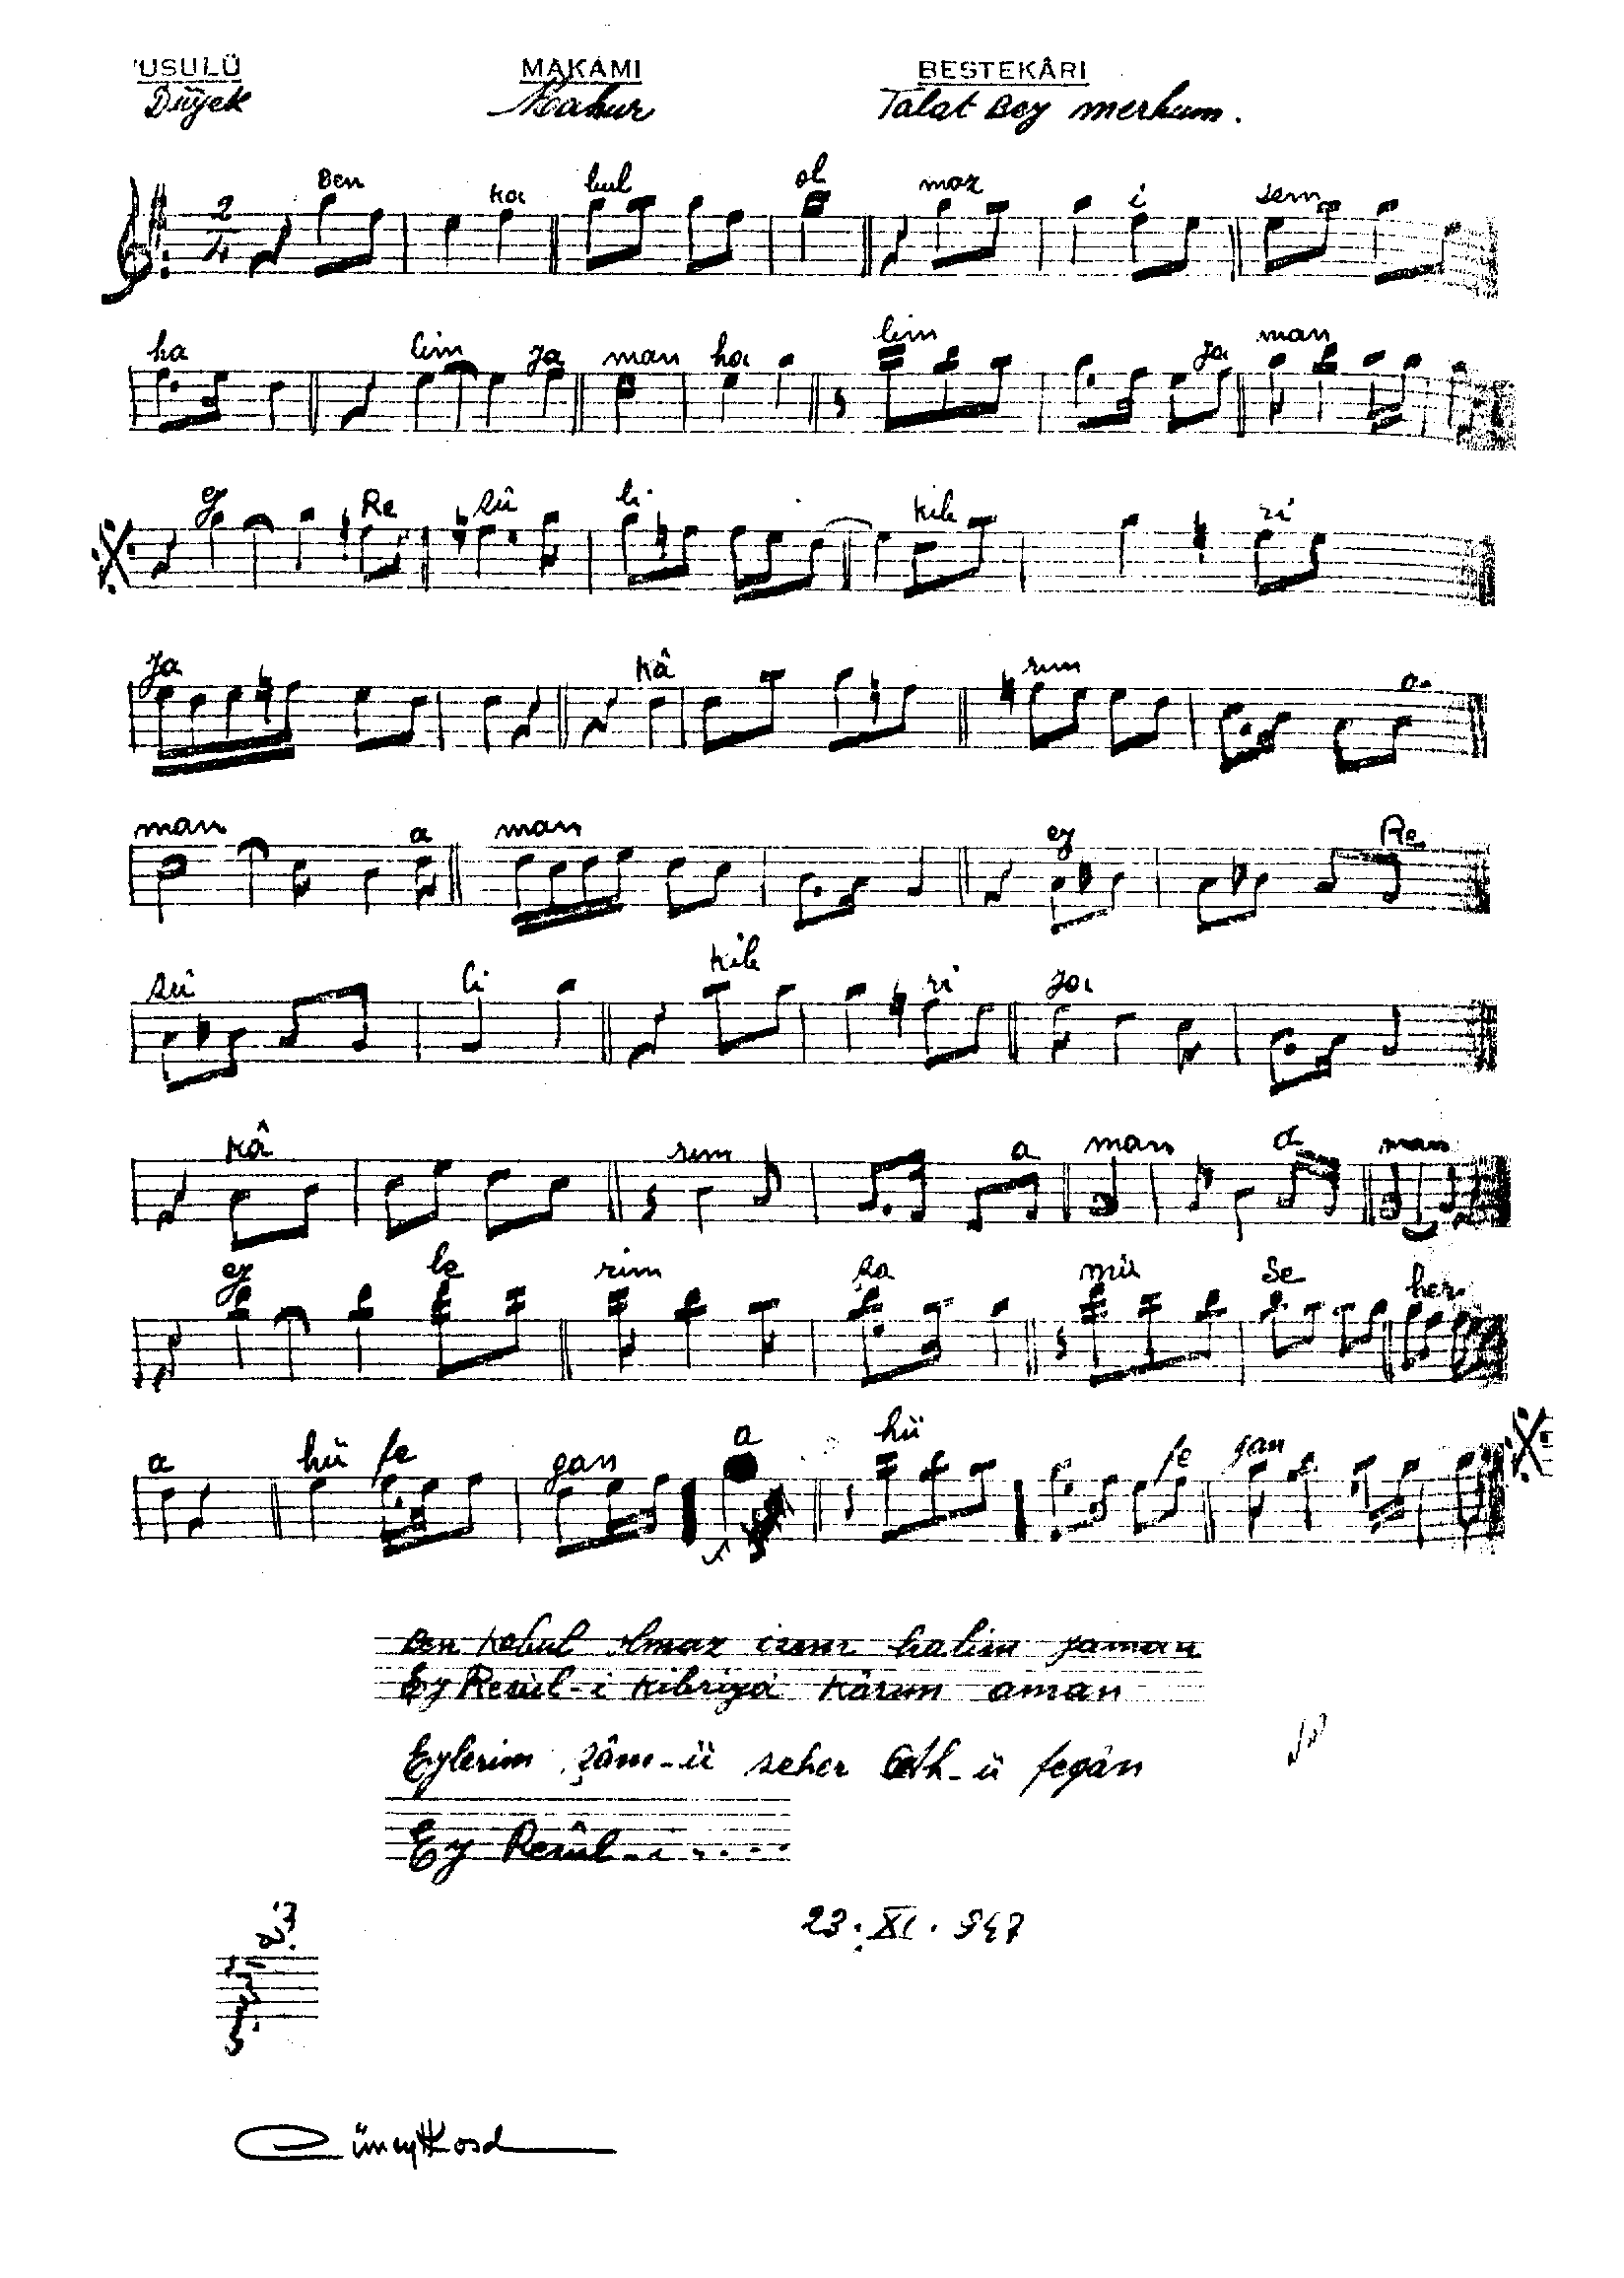 USULÜ MAKAMI BESTEKÂRI
Düyek Mahur Talat Bey merhum.
2/4
Ben ka bul ol maz i sem
ha lim ya man ha lim ya man
ey Re sû li kib ri
ya kâ rım a
man a man ey Re
sû li kib ri ya
kâ rım a man a man
ey le rim şa mü se her
a hü fe gan a hü fe gan
Ben kabul olmaz isem halim yaman
Ey Resûl-i kibriya kârım aman
Eylerim şâm-ü seher ü fegân
Ey Resûl-i....
23.XI.947